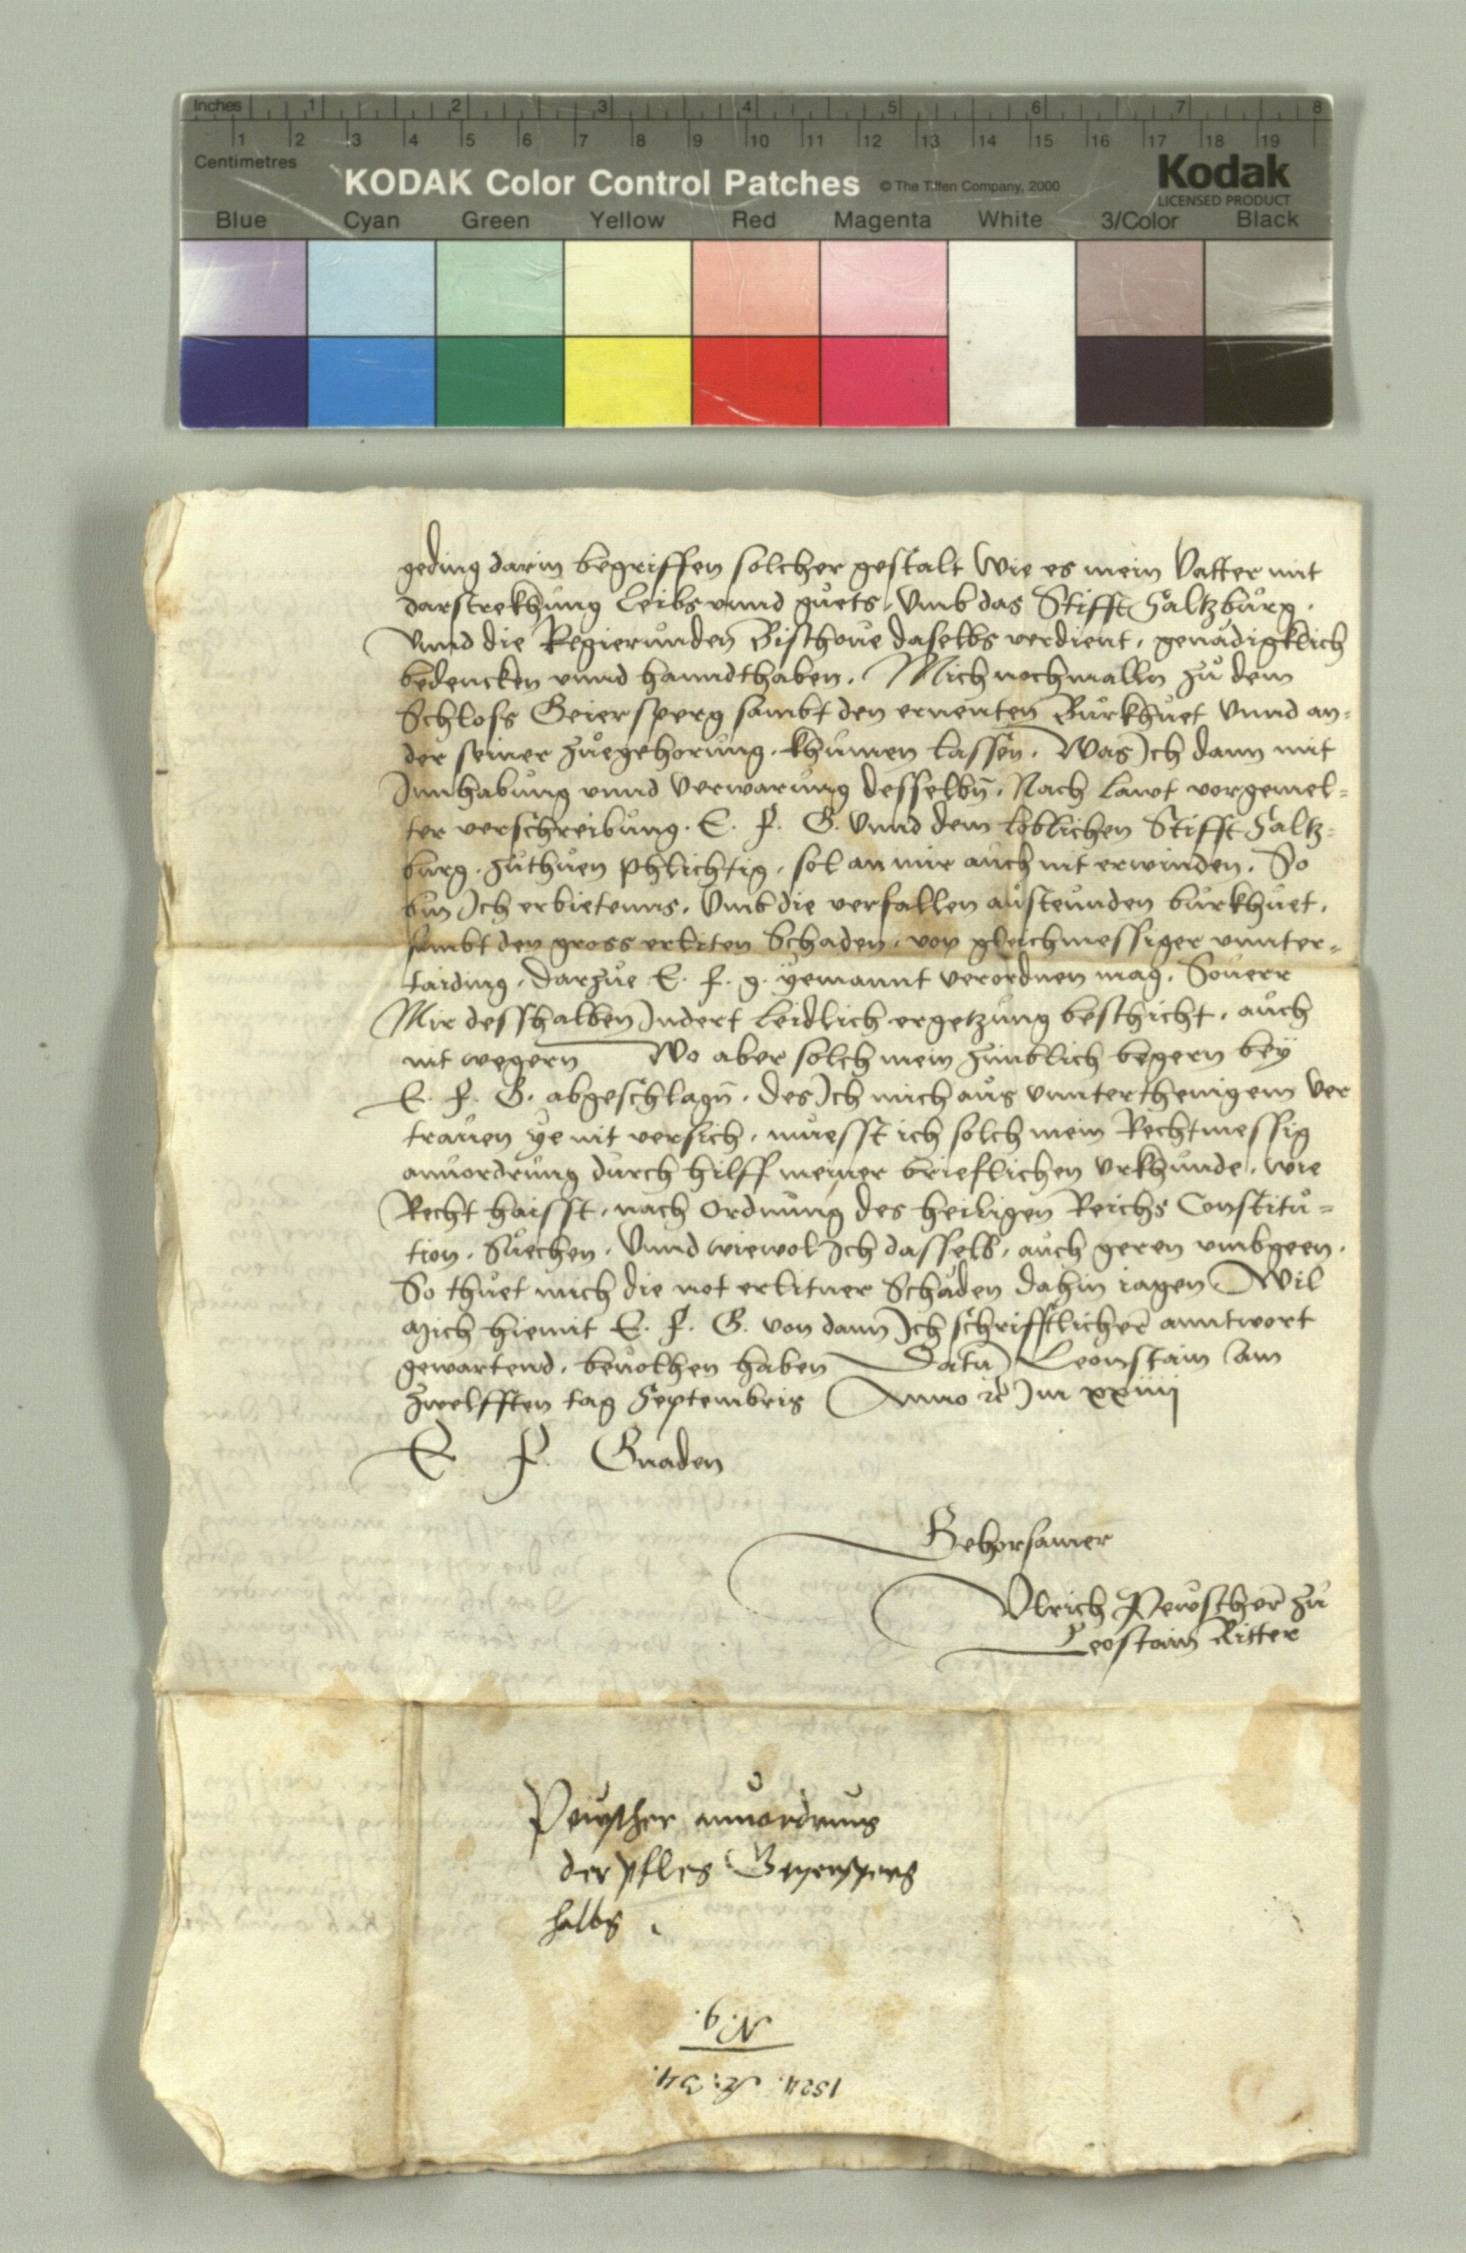 Inches 1 2 3 4 5 6 7 8
1 2 3 4 5 6 7 8 9 10 11 12 13 14 15 16 17 18 19
Centimetres
KODAK Color Control Patches © The Tiffen Company, 2000 Kodak
LICENSED PRODUCT
Blue Cyan Green Yellow Red Magenta White 3/Color Black
geding darin begriffen solcher gestalt Wie es mein Vatter mit
darstrekhung Leibs vnnd guets, Vmb das Stifft Saltzburg.
Vnnd die Regierunden Bischoue daselbs verdient, genadigklich
bedencken vnnd hanndthaben. Mich nochmalln zu dem
Schloss Geiersperg sambt den ernenten Burkhuet Vnnd an=
der seiner zuegehorung. khumen lassen. Was Ich dann mit
Innhabung vnnd verwarung desselbn̄. Nach lawt vorgemel=
ter verschreibung. E. F. G. Vnnd dem loblichen Stifft Saltz=
burg. zuthuen phlichtig, sol an mir auch nit erwinden. So
bin Ich erbietenns, Vmb die verfallen austeunden burkhuet.
sambt den gross erliten Schaden. von gleichmessiger vnnter=
taiding, darzue E. F. g. yemannt verordnen mag, Souerr
Mir desshalben Indert leidlich ergetzung beschicht, auch
nit wegern Wo aber solch mein zimblich begern bey
E. F. G. abgeschlagn̄. des Ich mich aus vnnterthenigem ver
trauen ye nit versich, muesst ich solch mein Rechtmessig
anuordrung durch hilff meiner brieflichen Vrkhunde, wie
Recht haisst, nach Ordnung des heiligen Reichs Constitu=
tion, Suechen. Vnnd wiewol Ich dasselb, auch geren vmbgeen.
So thuet mich die not erlitner Schaden dahin iagen Wil
Mich hiemit E. F. G. von dann Ich schrifftlicher anntwort
gewartend, beuolhen haben Datum Leonstain am
Zwelfften tag Septembris Anno ꝛc Im xxiiij
E F. Gnaden
Gehorsamer
Vlrich Pewscher zu
Leostain Ritter
Pewscher anuordrung
der pfleg Geyersperg
halbs.
N. 9.
1524. 34.